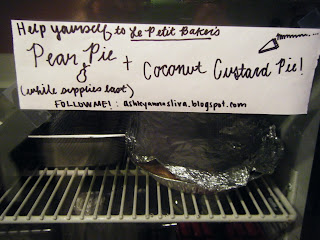 Help yourself to Le Petit Baker's
mmmm...
Pear Pie + Coconut Custard Pie!
(while supplies last)
FOLLOW ME! : ashleyannasliva.blogspot.com